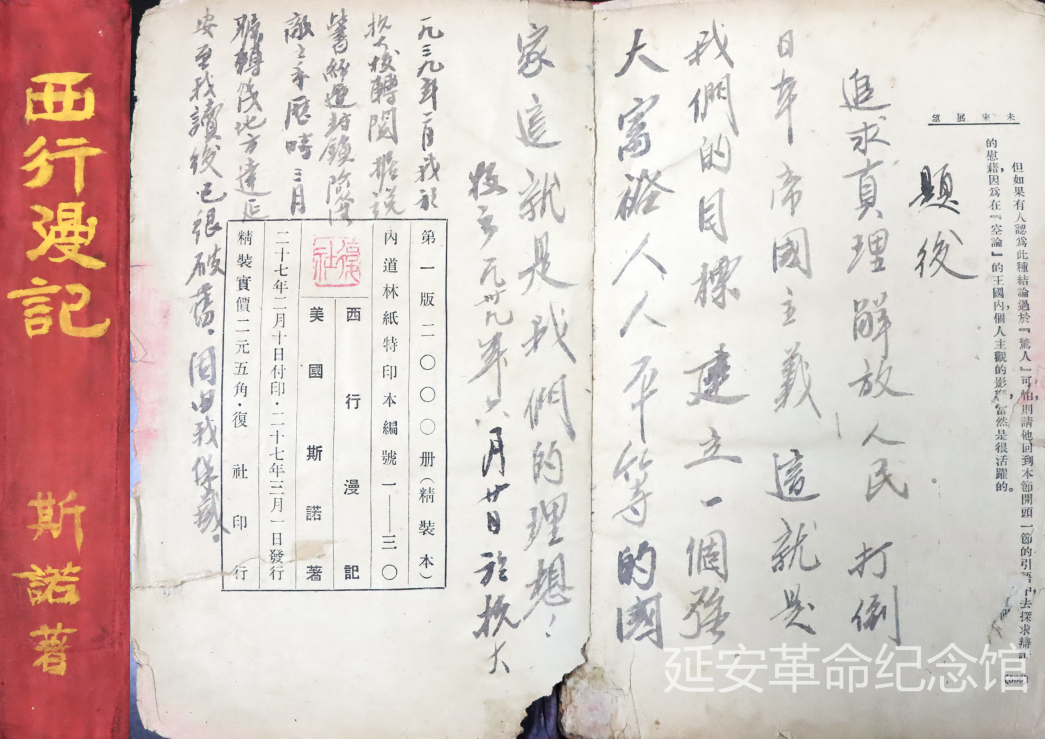 西行漫記
斯諾著
未來展望
但如果有人認爲此種結論過於『驚人』可怕，則請他回到本節開頭一節的引語中去探求辯
的慰藉，因爲在『空論』的王國內個人主觀的影響，當然是很活躍的。
題後
追求真理解放人民打倒
日本帝國主義這就是
我們的目標建立一個強
大富裕人人平等的國
家這就是我們的理想！
一九卅九年六月廿日於抗大
一九三九年二月我於
抗大校轉閱據說
此書經過封鎖險落
敵之手歷時三月
輾轉後地方達延
安至我讀後已很破舊。因由我保藏。
第一版二〇〇〇册（精裝本）
內道林紙特印本編號一——三〇
西行漫記
美國斯諾著
復社
二十七年二月十日付印·二十七年三月一日發行
精裝實價二元五角·復社印行
延安革命纪念馆